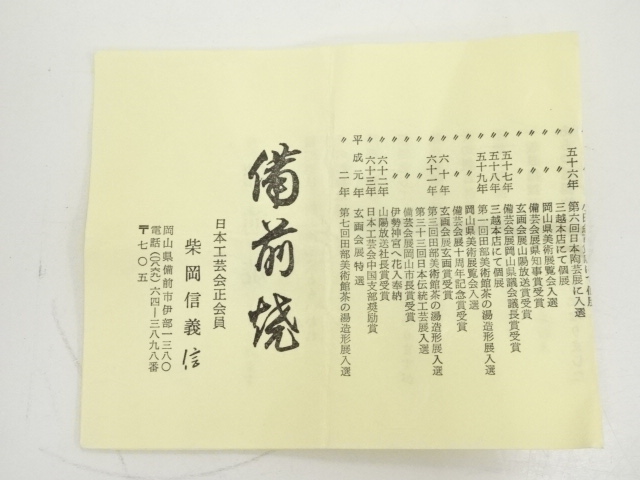 〃 五十六年 第六回日本陶芸展に入選
〃 〃 三越本店にて個展
〃 〃 岡山県美術展覧会入選
〃 〃 備芸会展県知事賞受賞
〃 〃 玄画会展山陽放送賞受賞
〃 五十七年 備芸会展岡山県議会議長賞受賞
〃 五十八年 三越本店にて個展
〃 五十九年 第一回田部美術館茶の湯造形展入選
〃 〃 岡山県美術展覧会入選
〃 〃 備芸会展十周年記念賞受賞
〃 六十年 玄画会展玄画賞受賞
〃 六十一年 第三回田部美術館茶の湯造形展入選
〃 〃 第三十三回日本伝統工芸展入選
〃 〃 備芸会展岡山市長賞受賞
〃 〃 伊勢神宮へ花入奉納
〃 六十二年 山陽放送社長賞受賞
〃 六十三年 日本工芸会中国支部奨励賞
平成元年 玄画会展特選
〃 二年 第七回田部美術館茶の湯造形展入選
備前焼
日本工芸会正会員
柴岡信義 信
岡山県備前市伊部一三八〇
電話 六四ー三八九八番
〒七〇五